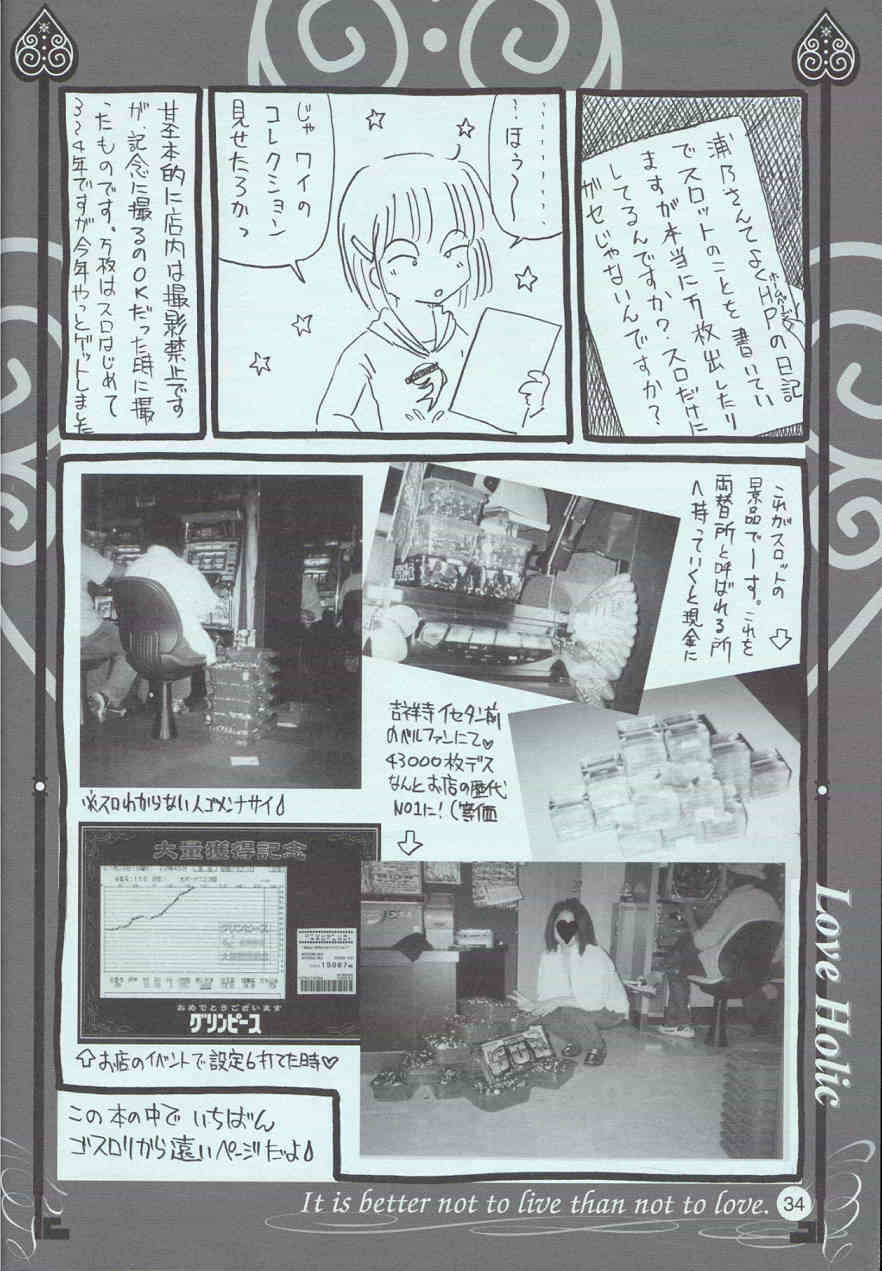 浦乃さんてよくHPの日記
でスロットのことを書いてい
ますが本当に万枚出したり
してるんですか？スロだけに
ガセじゃないんですか？
………
…ほぅ〜
じゃ ワイの
コレクション
見せたろかっ
基本的に店内は撮影禁止です
が、記念に撮るのOKだった時に撮
ったものです。万枚はスロはじめて
3〜4年ですが今年やっとゲットしました
これがスロットの
景品でーす。これを
両替所と呼ばれる所
へ持っていくと現金に
⇨
吉祥寺イセタン前
のベルファンにて♡
43000枚デス
なんとお店の歴代
NO1に！（等価
⇩
※スロわからない人ゴメンナサイ
大量獲得記念
グリンピース
15067
おめでとうございます
グリンピース
⇧お店のイベントで設定6打てた時♡
この本の中で いちばん
ゴスロリから遠いページだよ
Love Holic
It is better not to live than not to love.
34